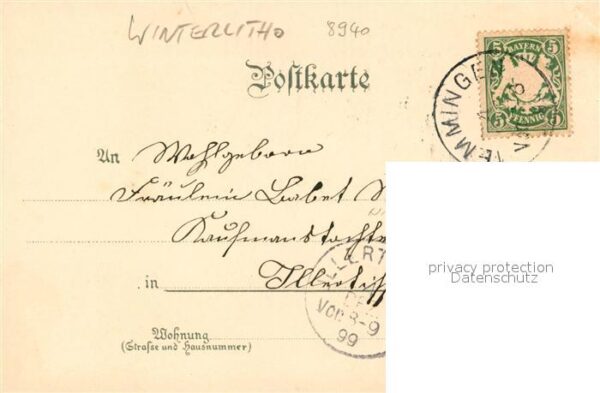 WINTERLITHO 8940
Postkarte
BAYERN
5 5
5 PFENNIG 5
MEMMINGE
An Wohlgeboren
Fräulein Babet
Kaufmanstocht
in Illertiss
ILLERT
Vor. 8-9
99
Wohnung
(Strasse und Hausnummer)
privacy protection
Datenschutz